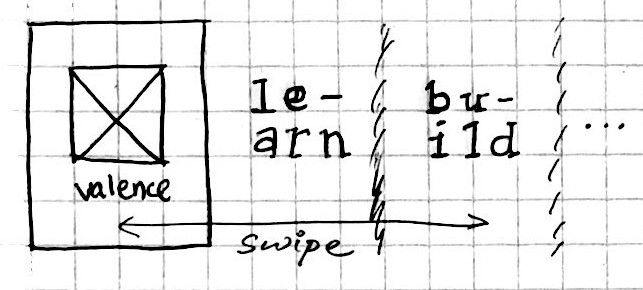 valence
le-
arn
bu-
ild
...
swipe